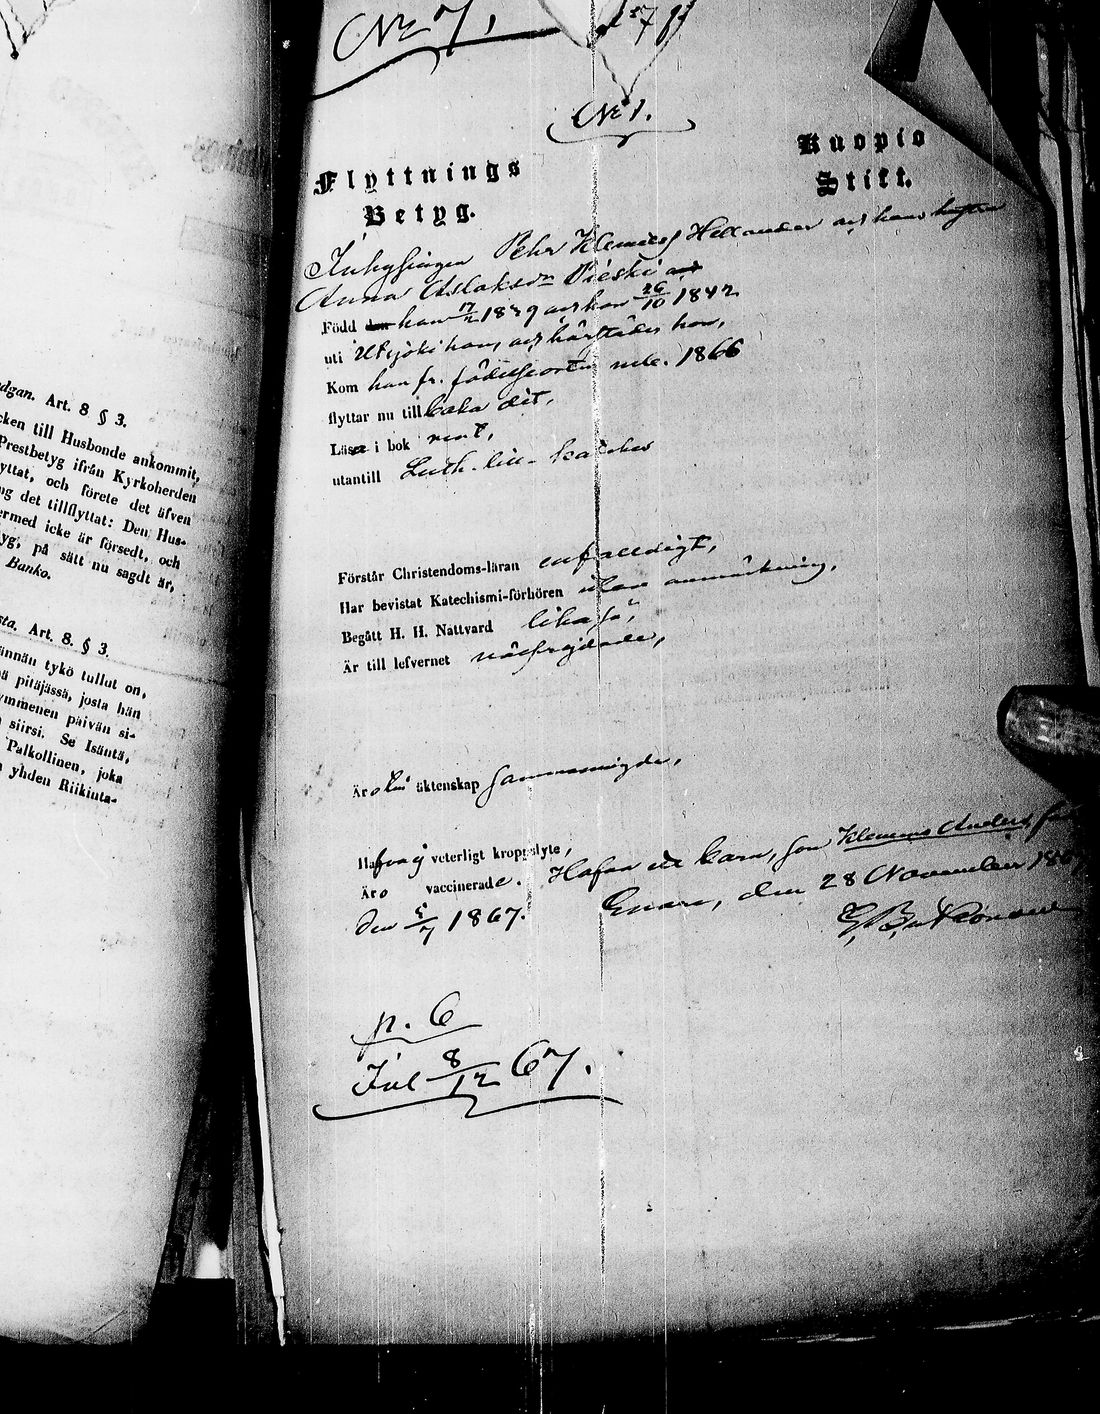 dgan. Art. 8 § 3.
cken till Husbonde ankommit,
Prestbetyg ifrån Kyrkoherden
yttat, och förete det äfven
ng det tillflyttat: Den Hus-
ermed icke är försedt, och
yg, på sätt nu sagdt är,
Banko.
sta. Art. 8. § 3.
ännän tykö tullut on,
ä pitäjässä, josta hän
ymmenen päivän si-
siirsi. Se Isäntä,
Palkollinen, joka
yhden Riikinta-
No 7,
No 1.
Flyttnings
Betyg.
Kuopio
Stift.
Inhysingen Pehr Klemens Hellander och hans hustru
Anna Aslaksdr Pieski
Född den han 17/2 1839 och hon 26/10 1842
uti Utsjoki han, och härstädes hon,
Kom han fr. födelseorten 1866
flyttar nu till baka dit,
Läser i bok rent,
utantill Luth. lill. katches
Förstår Christendoms-läran enfalldigt,
Har bevistat Katechismi-förhören utan anmärkning,
Begått H. H. Nattvard likaså,
Är till lefvernet wälfrejdade,
Äro till äktenskap sammanvigde,
Hafva ej veterligt kroppslyte,
Äro vaccinerade. Hafva ett barn, son Klemens Anders, född
den 5/7 1867. Enare, den 28 November 1867
p. 6
Inl 8/12 67.